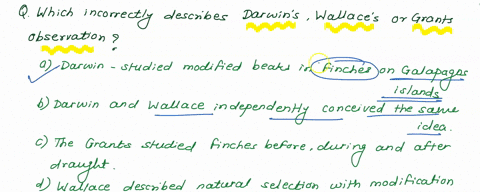 Q. Which incorrectly describes Darwin's, Wallace's or Grants
observation?
a) Darwin - studied modified beaks in finches on Galapagos
islands
b) Darwin and Wallace independently conceived the same
idea.
c) The Grants studied finches before, during and after
draught.
d) Wallace described natural selection with modification